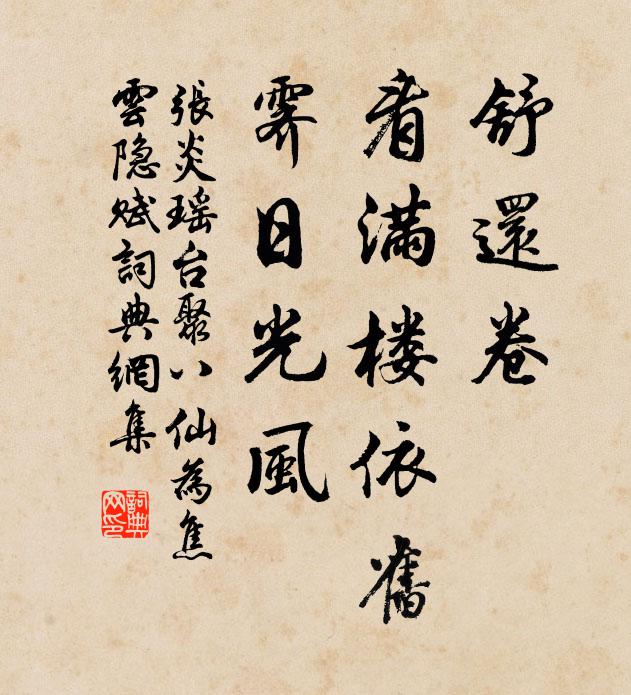 舒還卷
看滿楼依舊
霽日光風
張炎瑶台聚八仙為焦
雲隐赋詞典網集
詞典网印